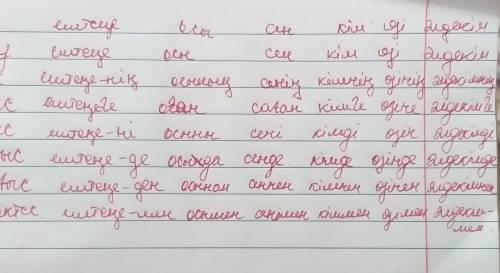 ештеңе осы сен кім өзі әлдекім
ештеңе осы сен кім өзі әлдекім
ештеңе-нің осының сенің кімнің өзінің әлдекімнің
ештеңеге оған саған кімге өзіне әлдекімге
ештеңе-ні осыны сені кімді өзін әлдекімді
ештеңе-де осында сенде кімде өзінде әлдекімде
ештеңе-ден осыдан сенен кімнен өзінен әлдекімнен
ештеңе-мен осымен сенімен кіммен өзімен әлдекім-
мен.